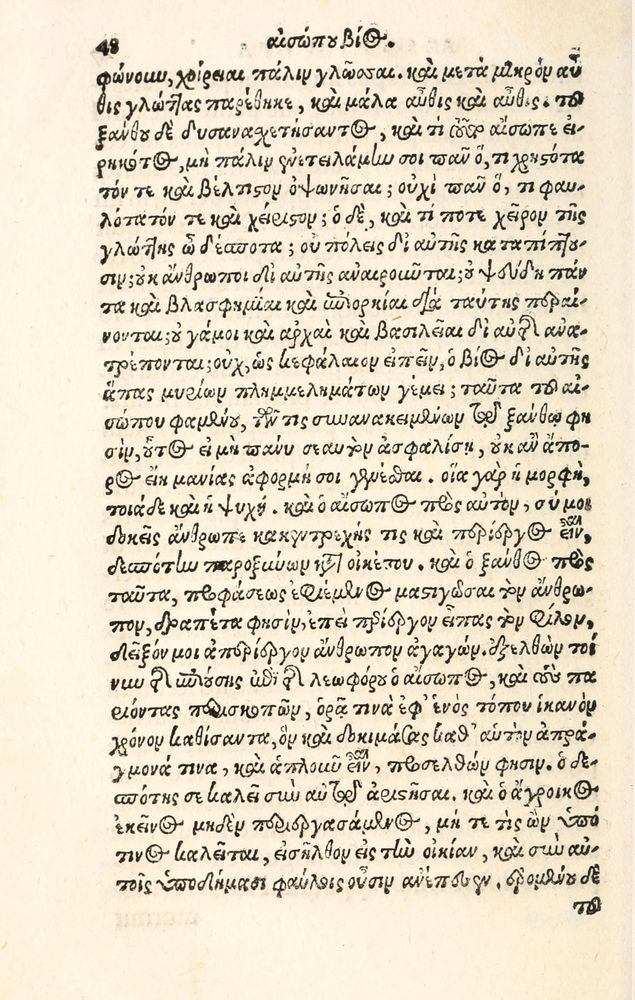 48 αἰσώπου βίος.
φώνουν, χοίρειαι πάλιν γλῶσσαι. καὶ μετὰ μικρὸν αὖ-
θις γλώττας παρέθηκε, καὶ μάλα αὖθις καὶ αὖθις. τοῦ
ξάνθου δὲ δυσανασχετήσαντος, καὶ τί σοι αἴσωπε εἰ-
ρηκότος, μὴ πάλιν ἐνετειλάμην σοι πᾶν ὅ, τι χρηστότα
τόν τε καὶ βέλτιστον ὀψωνῆσαι; οὐχὶ πᾶν ὅ, τι φαυ-
λότατόν τε καὶ χείριστον; ὁ δὲ, καὶ τί ποτε χεῖρον τῆς
γλώττης ὦ δέσποτα; οὐ πόλεις δι' αὐτῆς καταπίπτου-
σιν; οὐκ ἄνθρωποι δι' αὐτῆς ἀναιροῦνται; οὐ ψεύδη πάν
τα καὶ βλασφημίαι καὶ ἐπιορκίαι διὰ ταύτης περαί-
νονται; οὐ γάμοι καὶ ἀρχαὶ καὶ βασιλεῖαι δι' αὐτῆς ἀνα-
τρέπονται; οὐχ, ὡς κεφάλαιον εἰπεῖν, ὁ βίος δι' αὐτῆς
ἅπας μυρίων πλημμελημάτων γέμει; ταῦτα τοῦ αἰ-
σώπου φαμένου, τῶν τις συνανακειμένων τῷ ξάνθῳ φη
σὶν, οὗτος εἰ μὴ πάνυ σεαυτὸν ἀσφαλίσῃ, οὐκ ἂν ἄπο-
ρος εἴη μανίας ἀφορμή σοι γενέσθαι. οἵα γὰρ ἡ μορφὴ,
τοιάδε καὶ ἡ ψυχή. καὶ ὁ αἴσωπος πρὸς αὐτὸν, σύ μοι
δοκεῖς ἄνθρωπε κακεντρεχής τις καὶ περίεργος εἶναι,
δεσπότην παροξύνων κατὰ οἰκέτου. καὶ ὁ ξάνθος πρὸς
ταῦτα, προφάσεως ἐφιέμενος μαστιγῶσαι τὸν ἄνθρω-
πον, δραπέτα φησὶν, ἐπεὶ περίεργον εἶπας τὸν φίλον,
δεῖξόν μοι ἀπερίεργον ἄνθρωπον ἀγαγών. ἐξελθὼν τοί
νυν τῆς ἐπιούσης ἐπὶ τῆς λεωφόρου ὁ αἴσωπος, καὶ τοὺς πα
ριόντας περισκοπῶν, ὁρᾷ τινὰ ἐφ' ἑνὸς τόπου ἱκανὸν
χρόνον καθίσαντα, ὃν καὶ δοκιμάσας καθ' αὑτὸν ἀπρά-
γμονά τινα, καὶ ἁπλοῦν εἶναι, προσελθών φησιν. ὁ δε-
σπότης σε καλεῖ σὺν αὐτῷ ἀριστῆσαι. καὶ ὁ ἄγροικος
ἐκεῖνος μηδὲν περιεργασάμενος, μή τε τίς ὢν ὑπό
τινος καλεῖται, εἰσῆλθον εἰς τὴν οἰκίαν, καὶ σὺν αὐ-
τοῖς ὑποδήμασι φαύλοις οὖσιν ἀνέπεσεν. ἐρομένου δὲ
τοῦ